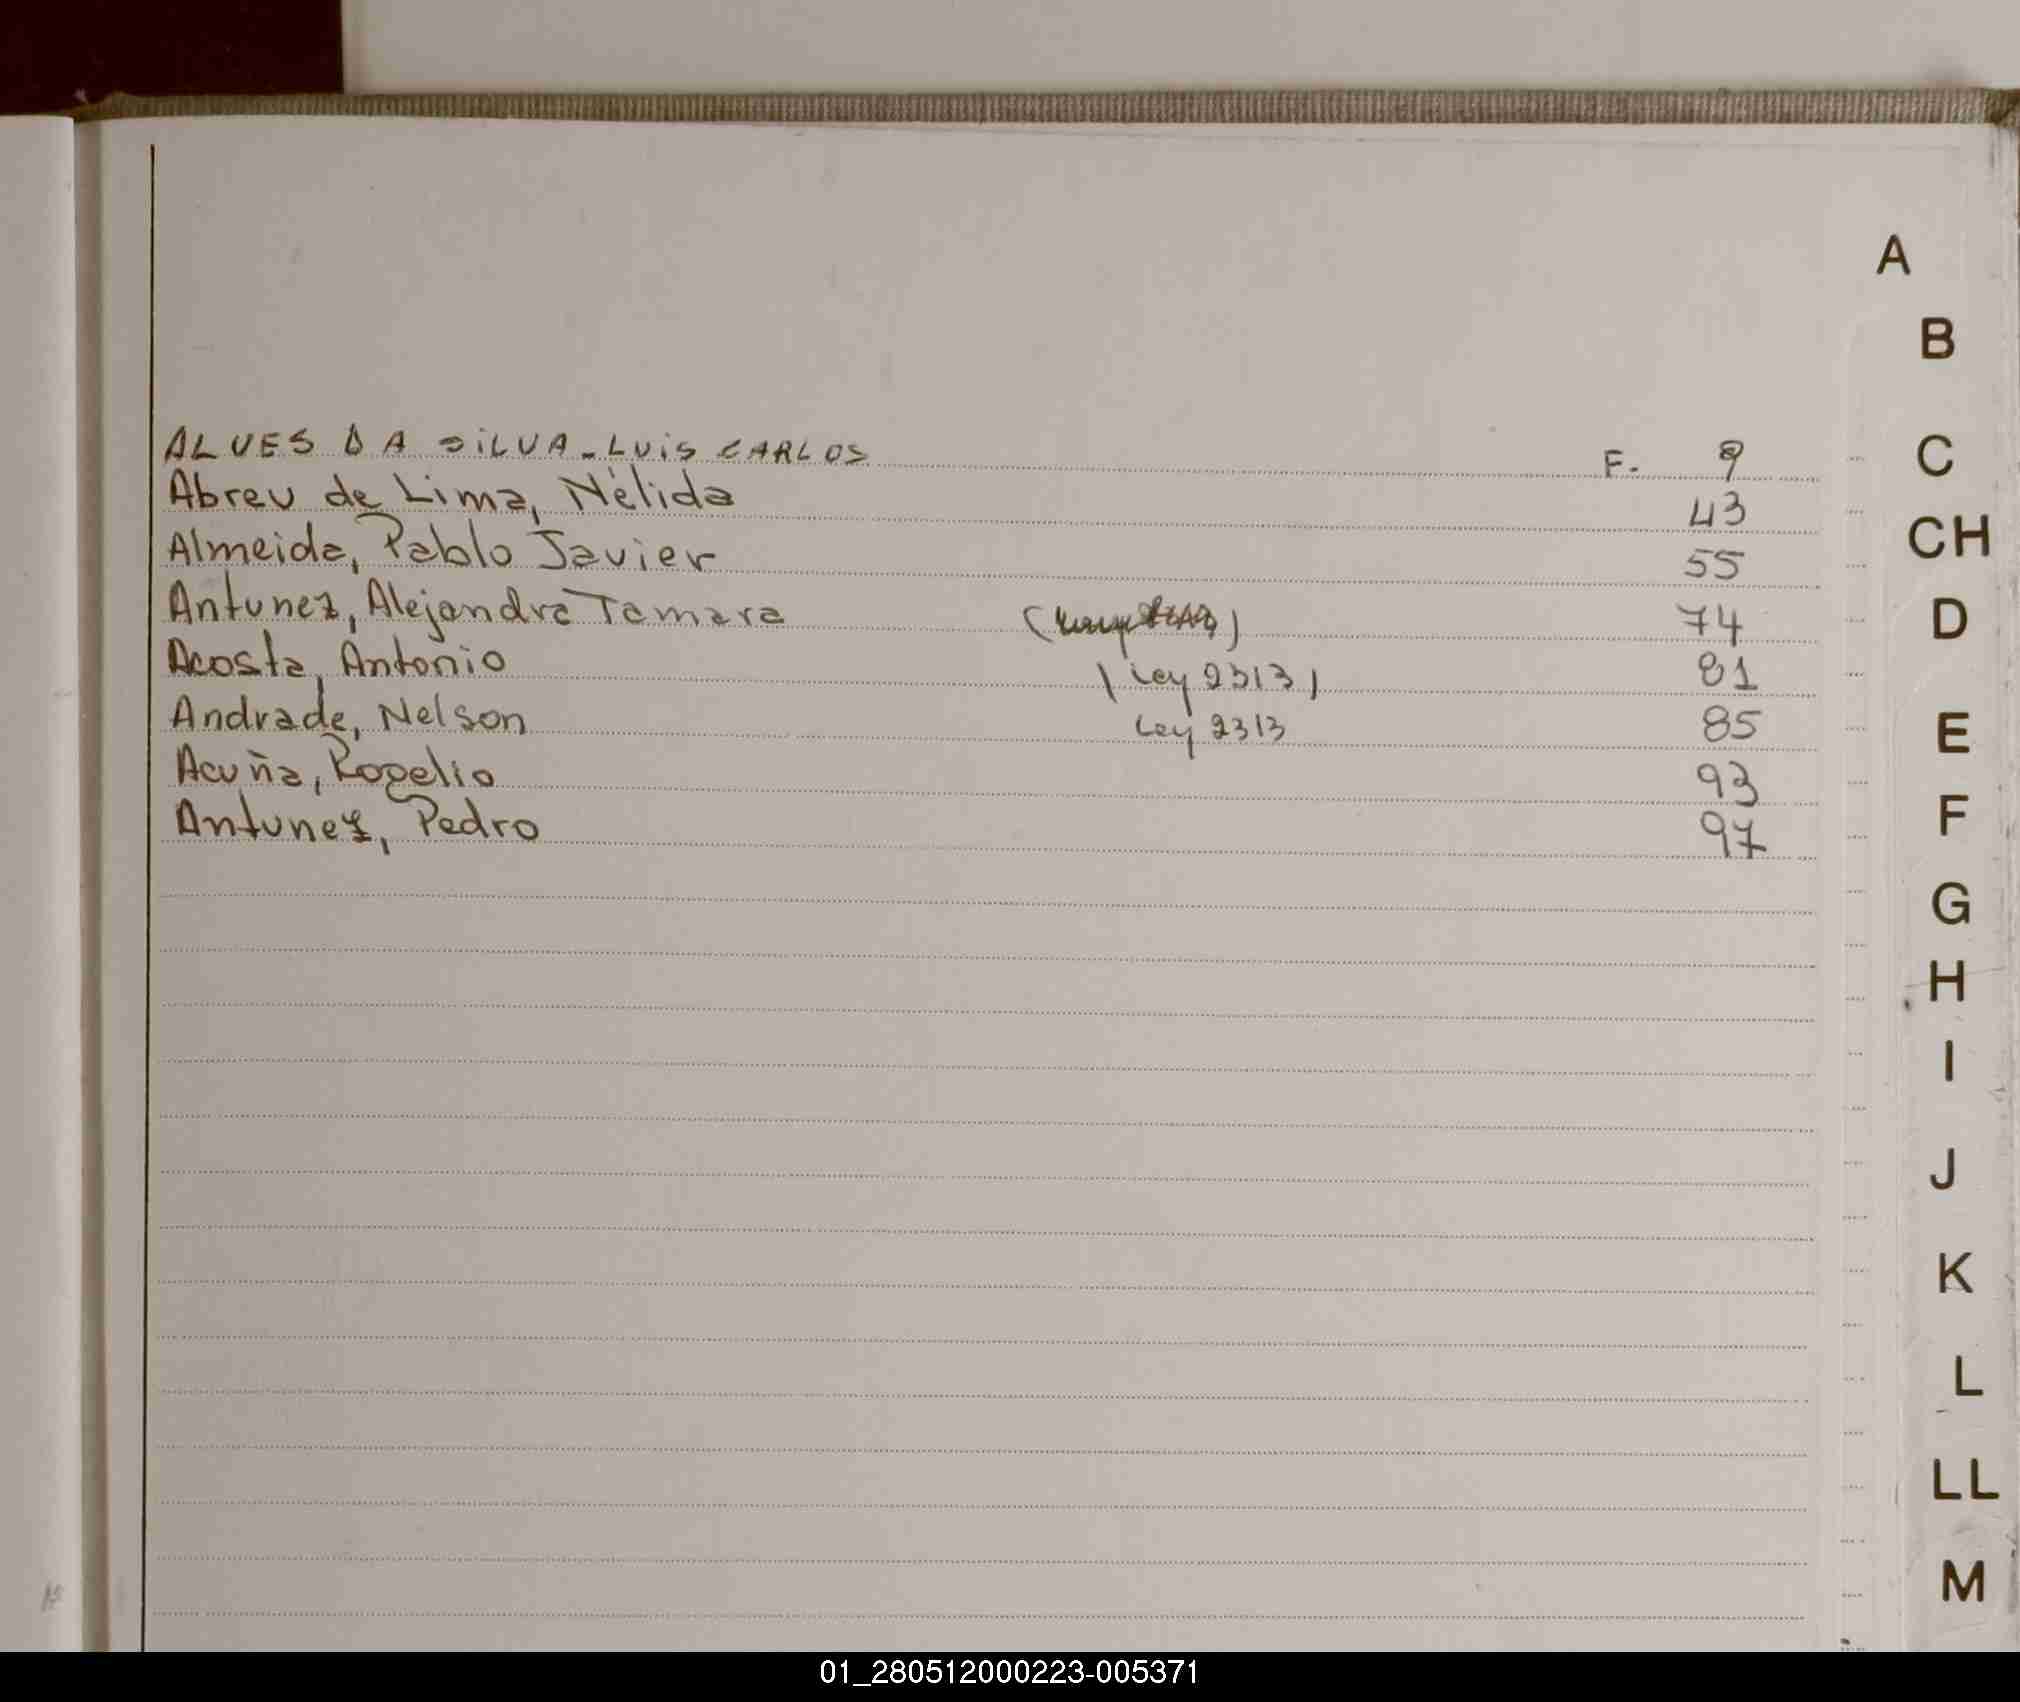 A
B
ALVES DA SILVA - LUIS CARLOS F. 9 C
Abreu de Lima, Nélida 43
Almeida, Pablo Javier 55 CH
Antunez, Alejandra Tamara 74 D
Acosta, Antonio (Ley 2313) 81
Andrade, Nelson Ley 2313 85 E
Acuña, Rogelio 93
Antunez, Pedro 97 F
G
H
I
J
K
L
LL
M
01_280512000223-005371